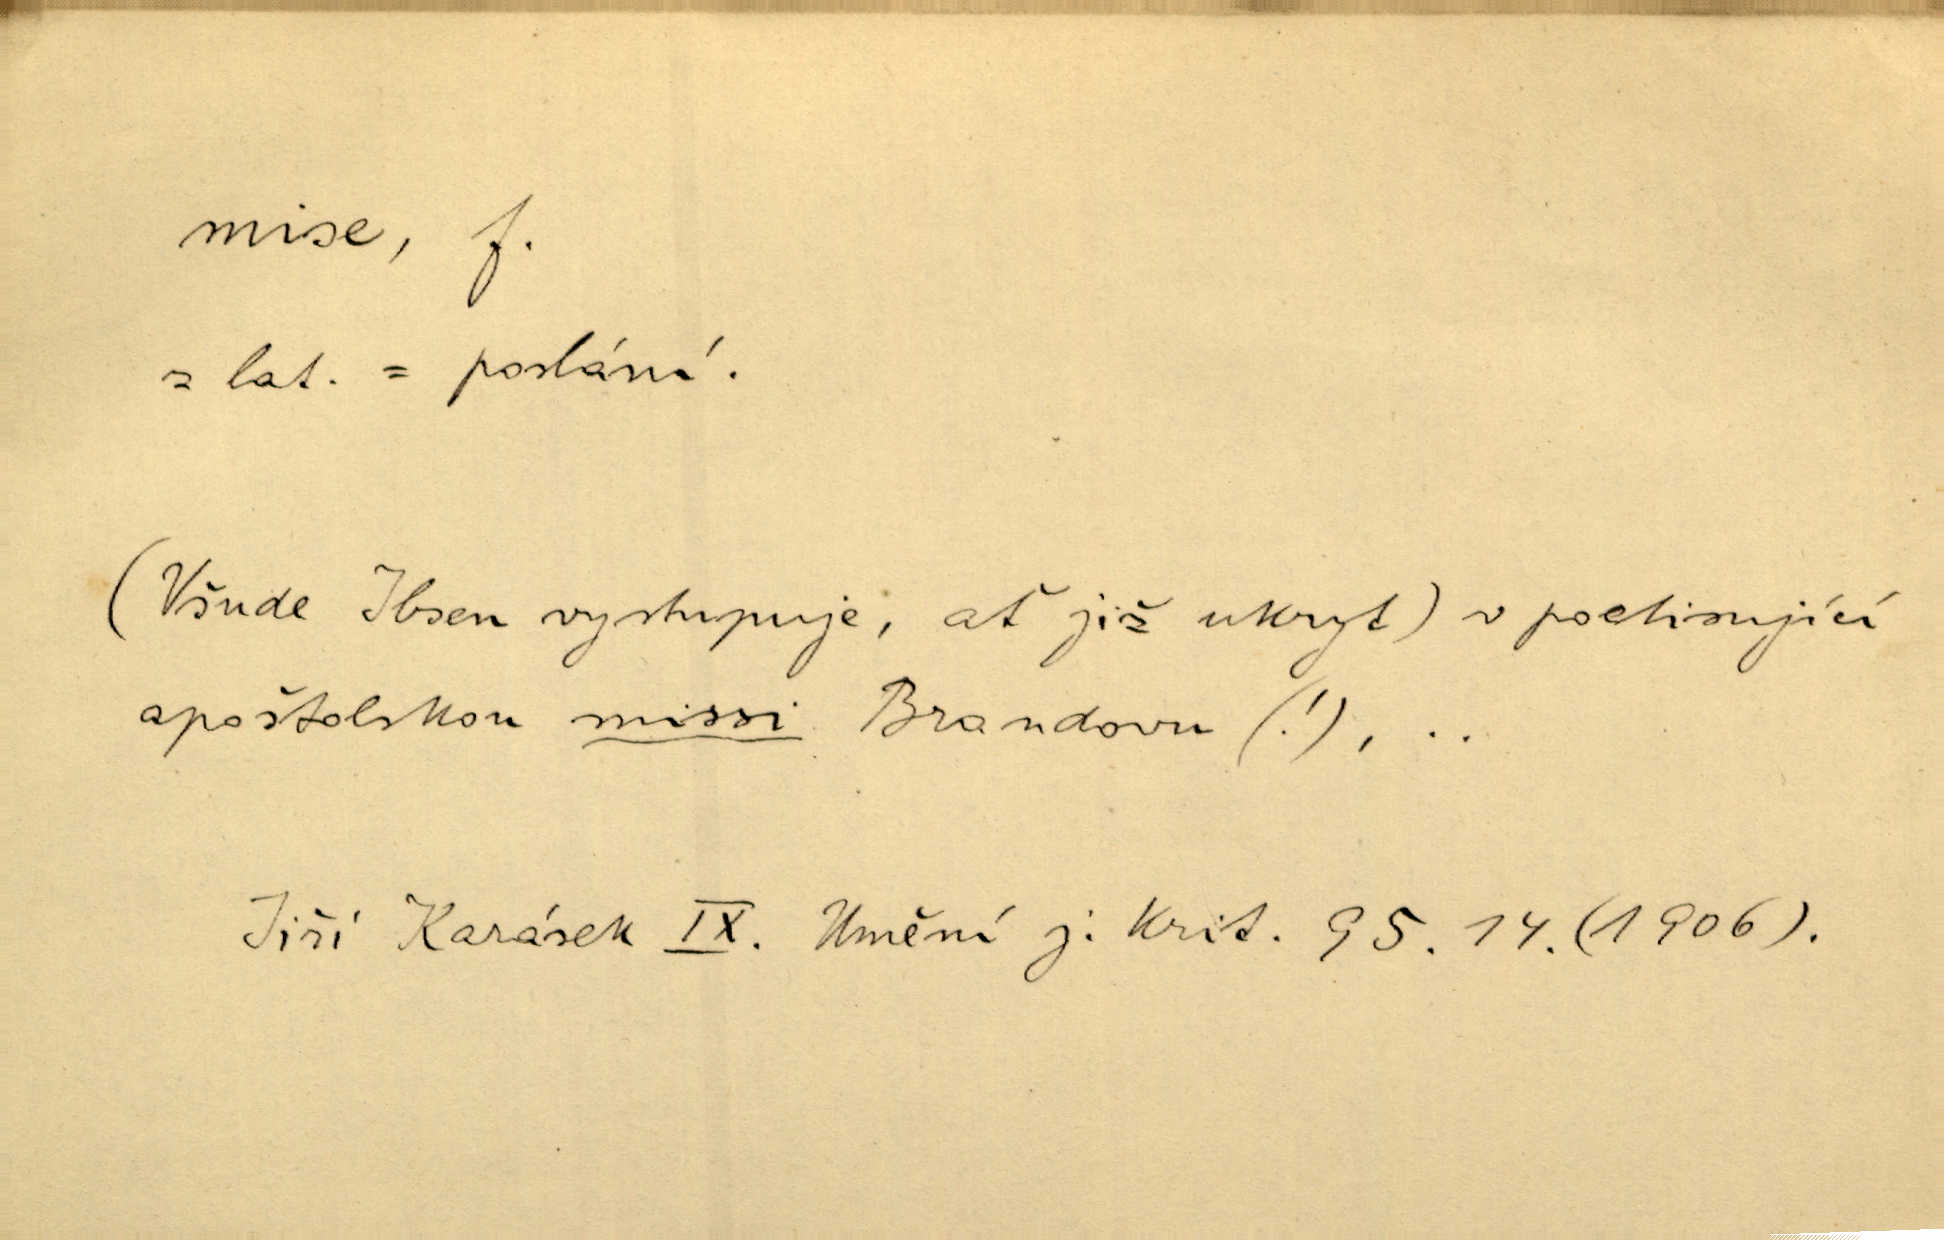 mise, f.
z lat. = poslání.
(Všude Ibsen vystupuje, ať již ukryt) v poetisující
apoštolskou missi Brandovu (!), ..
Jiří Karásek IX. Umění j. krit. 95. 14. (1906).